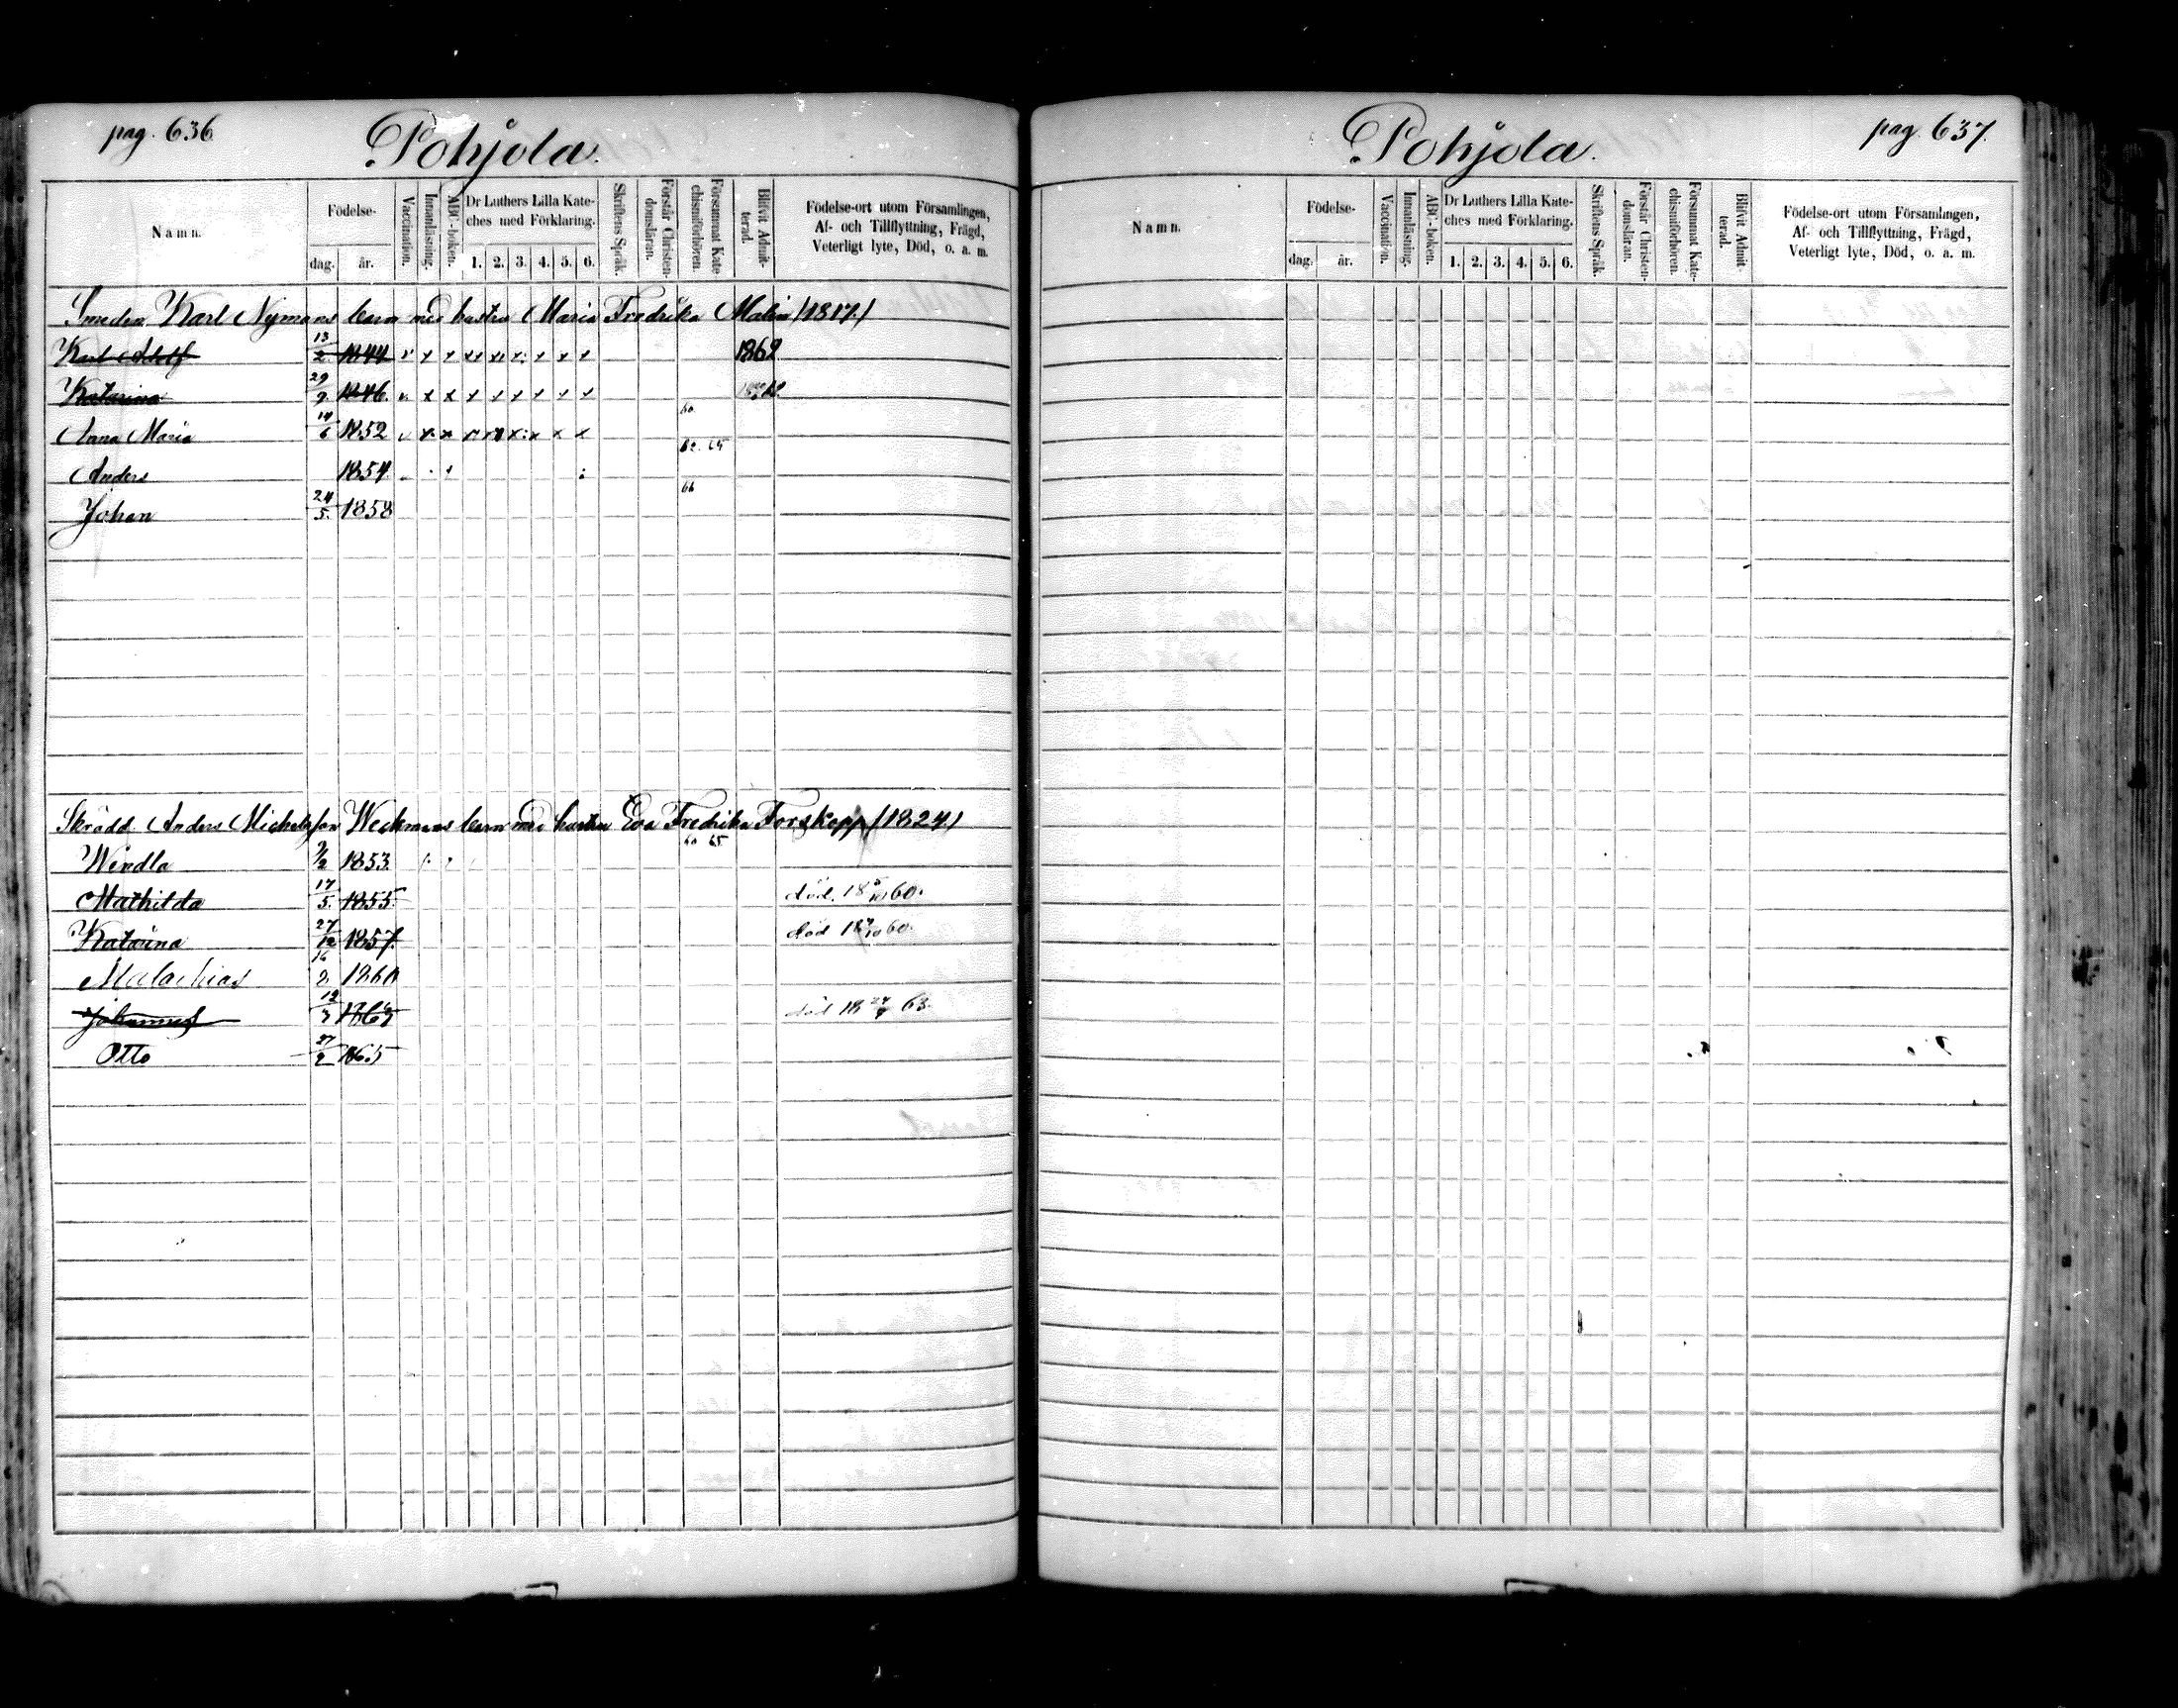 pag. 636
Pohjola.
Namn.
Födelse-
dag.
år.
Vaccination.
Innanläsning.
ABC-boken.
Dr Luthers Lilla Kate-
ches med Förklaring.
1. 2. 3. 4. 5. 6.
Skriftens Språk.
Förstår Christen-
domsläran.
Försummat Kate-
chismiförhören.
Blifvit Admit-
terad.
Födelse-ort utom Församlingen,
Af- och Tillflyttning, Frägd,
Veterligt lyte, Död, o. a. m.
Smeden Karl Nymans barn med hustru Maria Fredrika Malin (1817.)
Karl Adolf 13/2 1844 1862
Katarina 29/9 1846.
60.
Anna Maria 14/6 1852
62. 65
Anders 1854
66
Johan 24/5. 1858
Skrädd. Anders Michelsson Weckmans barn med hustru Eva Fredrika Forskopp (1824)
60 65
Wendla 9/2 1853.
Mathilda 17/5. 1855. död. 18 5/10 60.
Katarina 27/12 1857. död 18 /10 60.
Malachias 16/2. 1860
Johannes 12/3 död 18 24/9 63.
Otto 27/2 1865
pag. 637.
Pohjola.
Namn.
Födelse-
dag.
år.
Vaccination.
Innanläsning.
ABC-boken.
Dr Luthers Lilla Kate-
ches med Förklaring.
1. 2. 3. 4. 5. 6.
Skriftens Språk.
Förstår Christen-
domsläran.
Försummat Kate-
chismiförhören.
Blifvit Admit-
terad.
Födelse-ort utom Församlingen,
Af- och Tillflyttning, Frägd,
Veterligt lyte, Död, o. a. m.